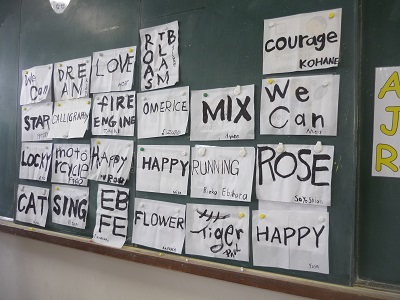 We
Can
DREAM
LOVE
courage
KOHANE
STAR
CALLIGRAPHY
FIRE
ENGINE
OMERICE
MIX
We
Can
LOCKY
motorcycle
HAPPY
HAPPY
RUNNING
ROSE
CAT
SING
EB
FE
FLOWER
Tiger
HAPPY
A
J
R